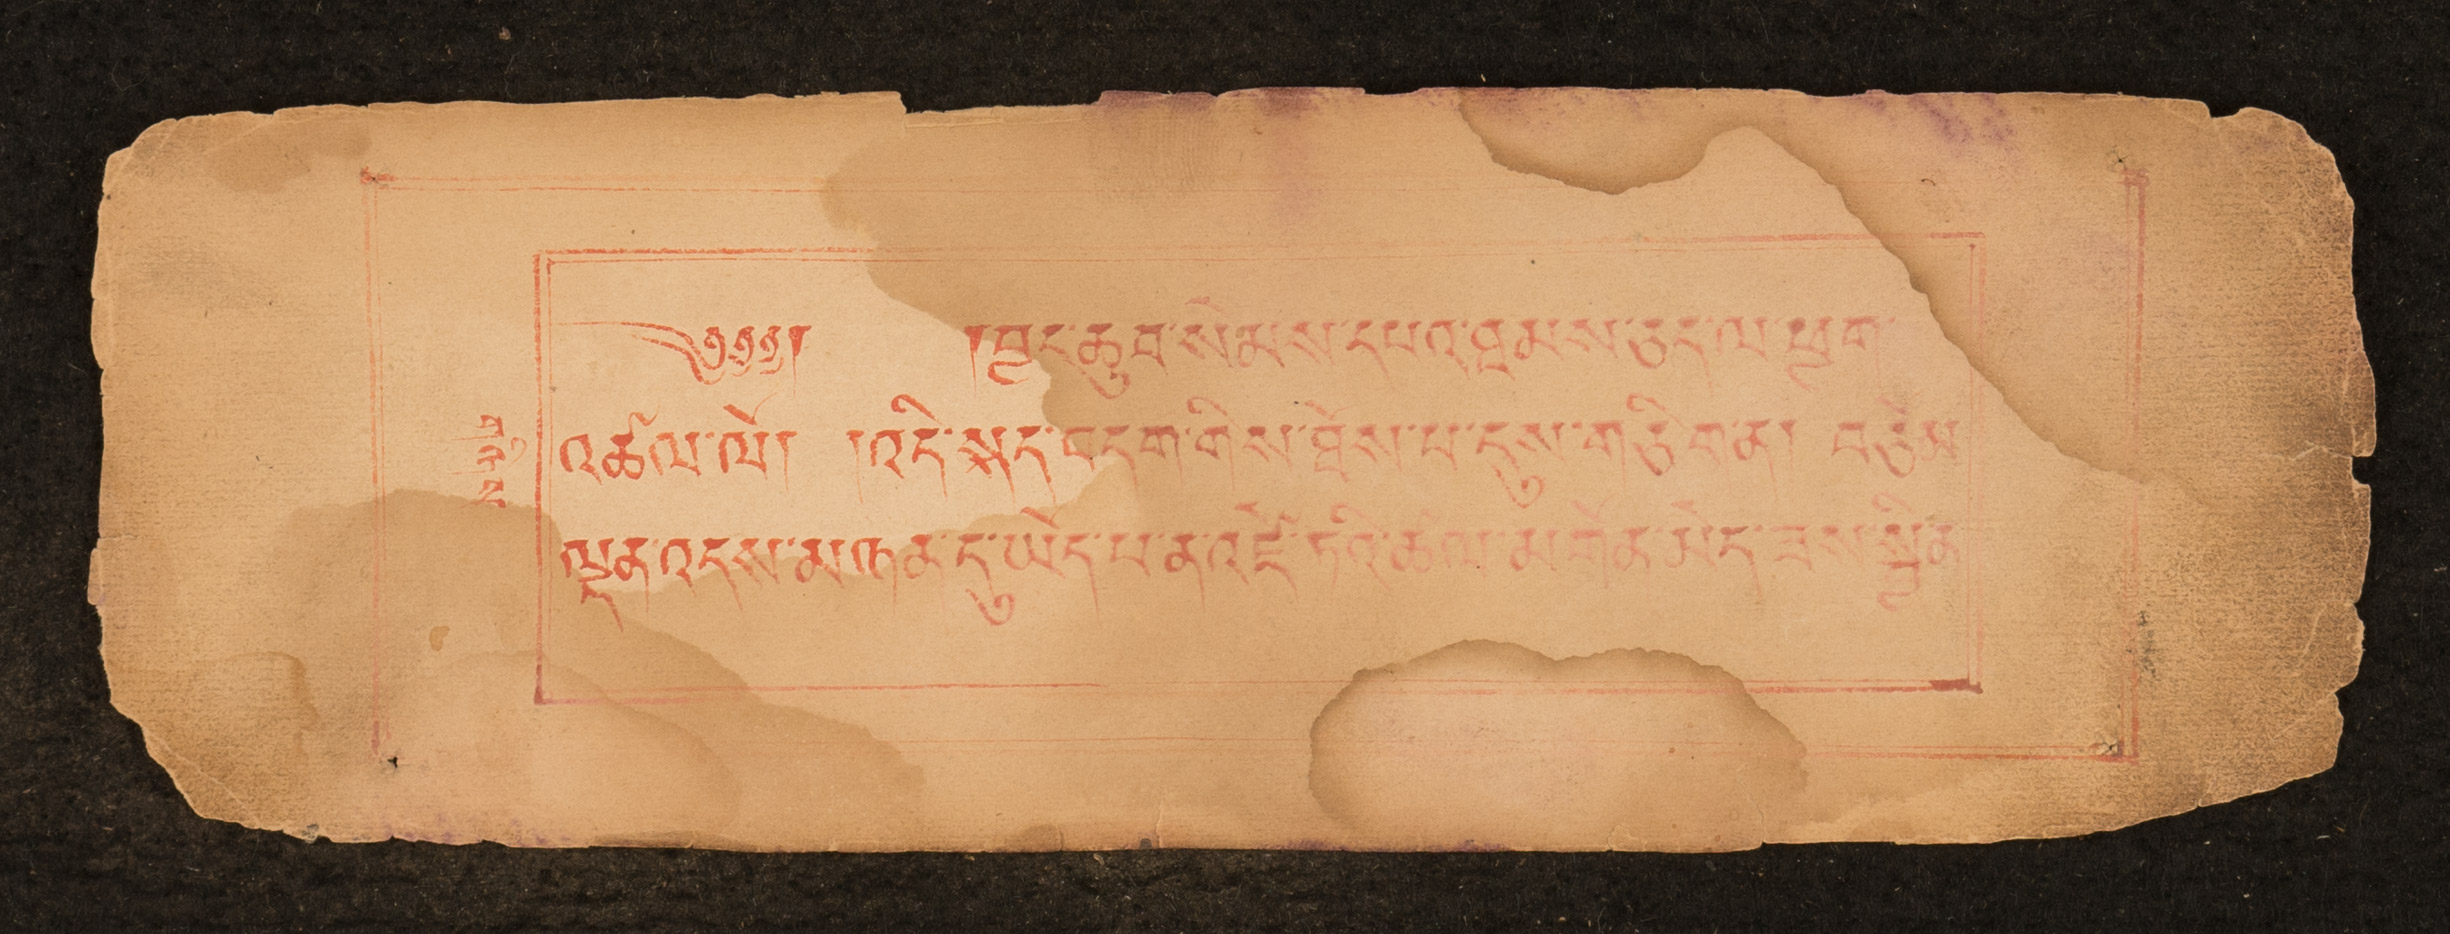 ༄༅༅། །བྱང་ཆུབ་སེམས་དཔའ་ཐམས་ཅད་ལ་ཕྱག་
འཚལ་ལོ། །འདི་སྐད་བདག་གིས་ཐོས་པ་དུས་གཅིག་ན། བཅོམ་
ལྡན་འདས་མཉན་དུ་ཡོད་པ་ན་འཛེ་ཏའི་ཚལ་མགོན་མེད་ཟས་སྦྱིན་